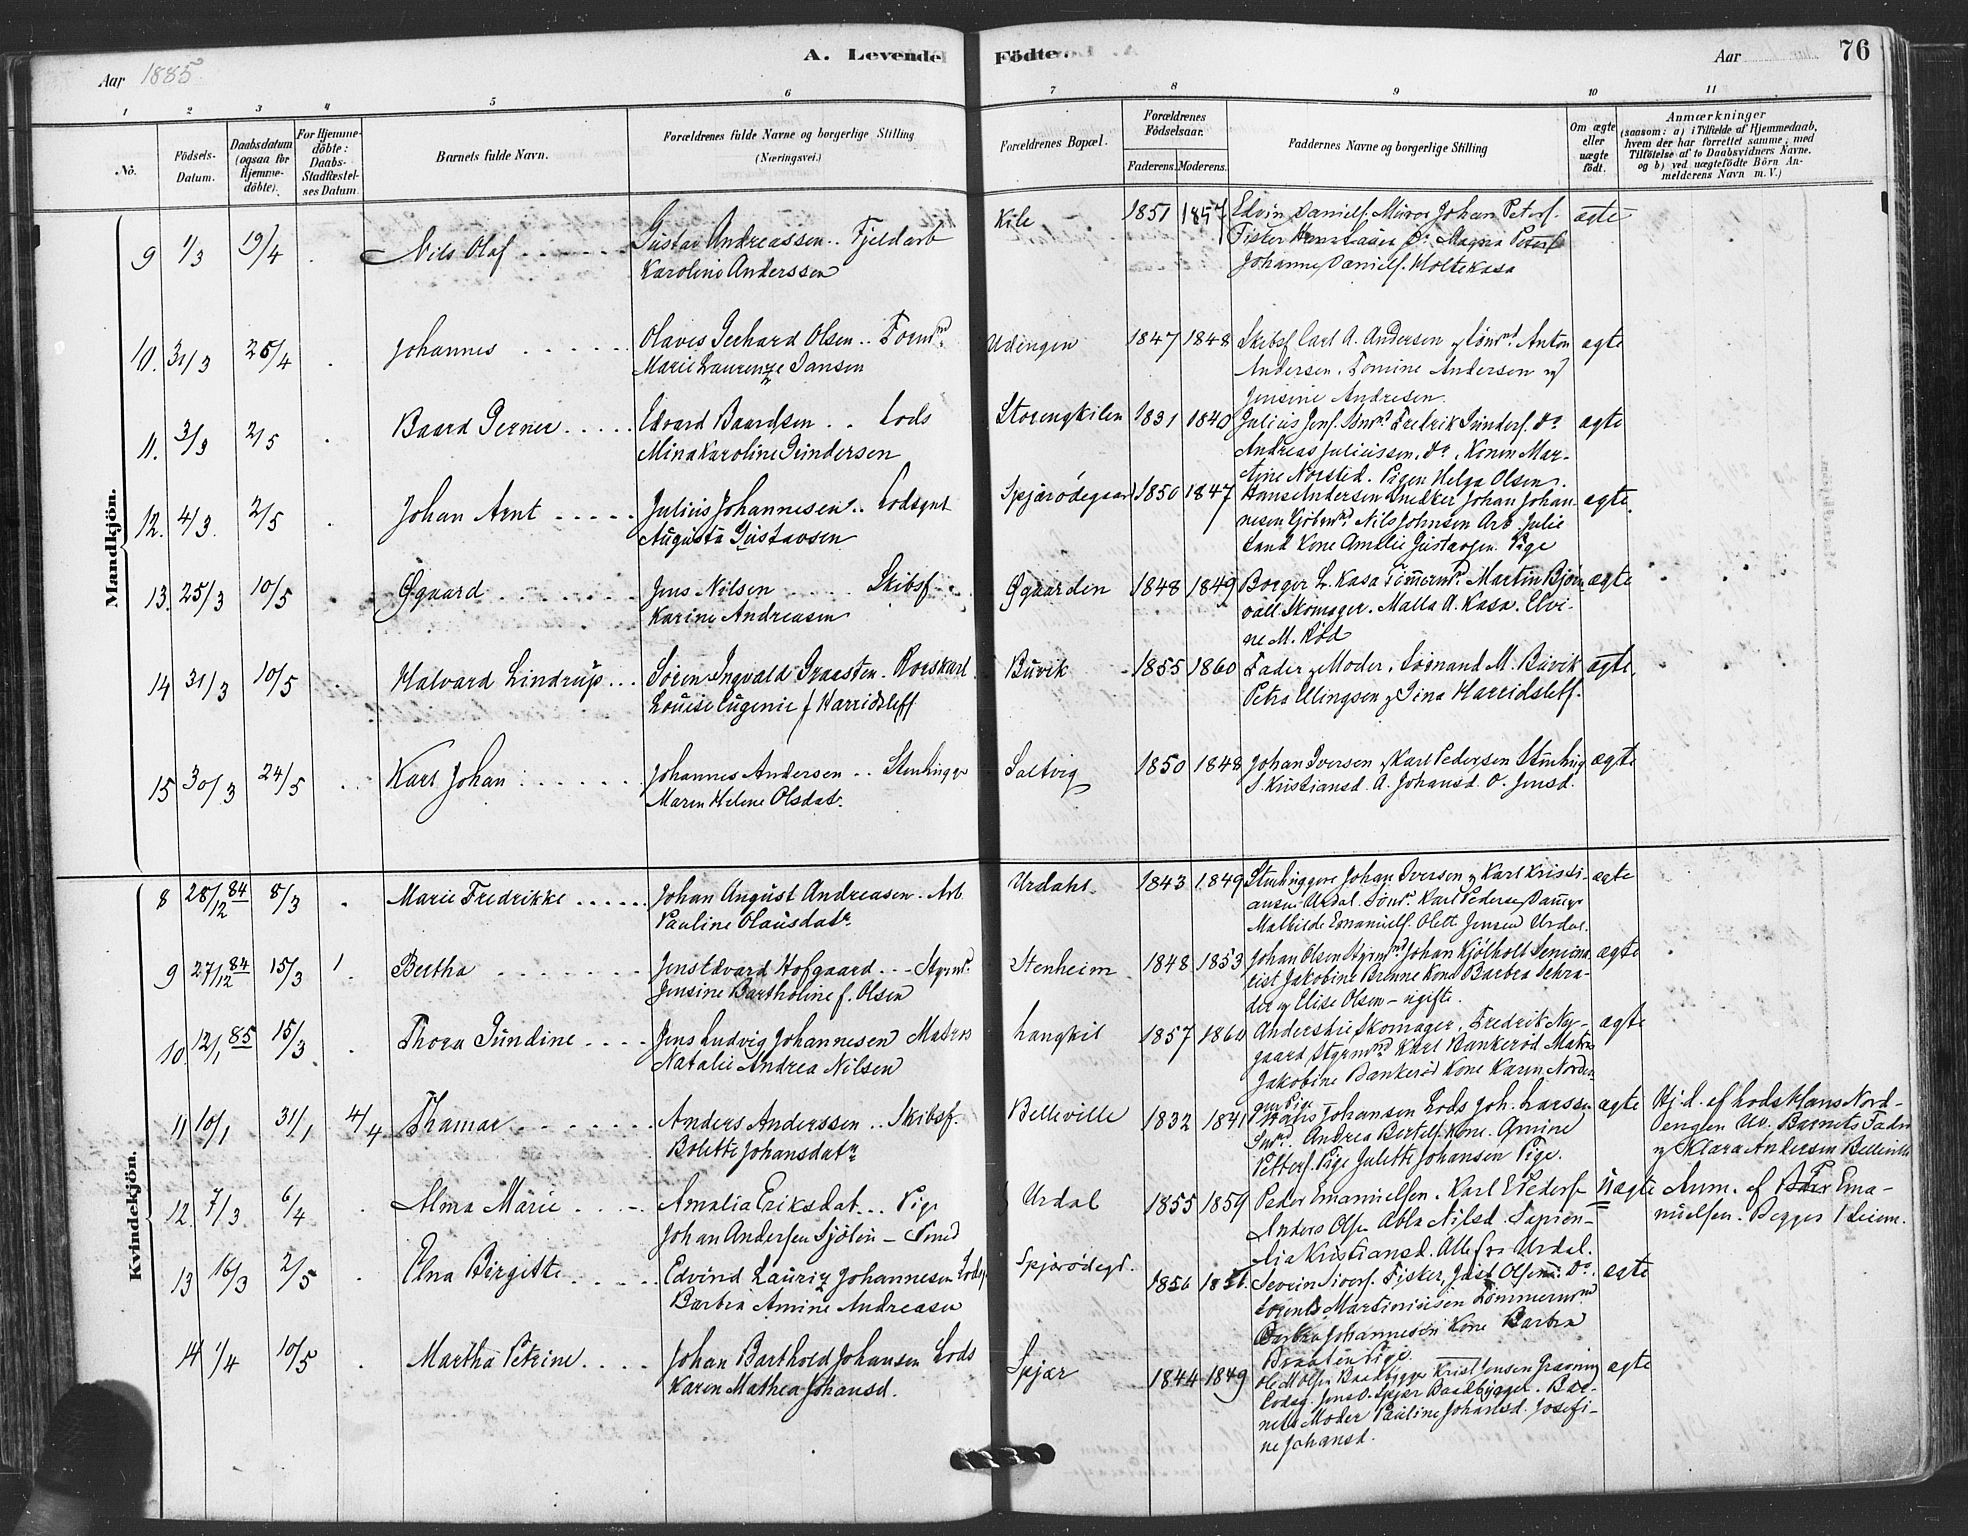 Aar 1885
A. Levende
Födte.
Aar
76
1 2 3 4 5 6 7 8 9 10 11
No.
Födsels-
Datum.
Daabsdatum
(ogsaa for
Hjemme-
döbte).
For Hjemme-
döbte:
Daabs-
Stadfæstel-
ses Datum.
Barnets fulde Navn.
Forældrenes fulde Navne og borgerlige Stilling
(Næringsvei.)
Forældrenes Bopæl.
Forældrenes
Födselsaar.
Faderens. Moderens.
Faddernes Navne og borgerlige Stilling
Om ægte
eller
uægte
födt.
Anmærkninger
(saasom: a) i Tilfælde af Hjemmedaab,
hvem der har forrettet samme, med
Tilföielse af to Daabsvidners Navne.
og b) ved uægtefödte Börn An-
melderens Navn m. V.)
Mandkjön.
9 1/3 19/4 Nils Olaf Gustav Andreassen .. Fjeldarb Kile 1851 1857 Edvin Daniels. Murer Johan Peters. ægte
Karoline Anderssen
Fisker Magna Peters
Johanne Daniels. Holtekasa
10. 31/3 26/4 Johannes Olaves Gerhard Olsen .. Udengen 1847 1848 Skibsf Carl A. Andersen Anton ægte
Marie Laurenze Jansen
Andersen. Tomine Andersen
Jensine Andresen.
11. 3/3 2/5 Baard Gerner Edvard Baardsen .. Lods Storengkilen 1831 1840 Julius Jens. Fredrik Gunders. do ægte
Mina Karoline Gundersen
Andreas Juliussen, do, Konen Mar-
tine Norsted. Pigen Helga Olsen
12. 4/3 2/5 Johan Arnt Julius Johannesen .. Lodsgut Spjærødegaard 1850 1847 Hans Andersen Snekker Johan Johan- ægte.
Augusta Gustavsen
nesen Nils Johnsen Arb. Julie
Sand Kone Amalie Gustavsen. Pige
13. 25/3 10/5 Øgaard Jens Nilsen Skibsf. Øgaarden 1848 1849 Borger L. Kasa Tömermd. Martin Björn ægte
Karine Andreasen
vall. Skomager. Malla A. Kasa. Elvi-
ne M. Röd
14 31/3 10/5 Halvard Lindrup Sören Ingvald Graasten. Buvik 1855 1860 Fader y Moder, Sömand M. Buvik ægte.
Louise Eugenie f Harridsleff
Petra Ellingsen y Gina Harridsleff.
15 30/3 24/5 Karl Johan Johannes Andersen .. Stenhugger Saltvig 1850 1848 Johan Iversen y Karl Pedersen Stenhug ægte
Maren Helene Olsdat.
S. Kristiansd. A. Johansd. O. Jensd.
Kvindekjön.
8 28/12 84 8/3 Marie Fredrikke Johan August Andreasen. Arb. Urdahl. 1843 1849 Stenhuggere Johan Iversen y Karl Kristi- ægte
Pauline Olausdatr
ansen Urdal. Karl Pederse
Mathilde Emanuels. Olett Jensen Urdal.
9 27/12 84 15/3 1 Bertha Jens Edvard Hofgaard Styrmd. Stenheim 1848 1853 Johan Olsen Styrmnd Johan Kjölholt Semina- ægte
Jensine Bartholine f. Olsen
rist Jakobine Brenne Kone Barbra Schra-
der y Elise Olsen – ugifte.
10. 12/1 85 15/3 Thora Gundine Jens Ludvig Johannesen Matros Langkil 1857 1860 Skomager. Fredrik Ny- ægte
Natalie Andrea Nilsen
gaard Styrmnd Karl Bankeröd Matro
Jakobine Bankeröd Kone Karen Norden-
gen Pige
11 10/1 31/1 4/4 Thamar Anders Anderssen .. Skibsf. Belleville 1832 1841 Johansen Lods Joh. Larssen ægte Hj.d. af Lods Hans Nord-
Bolette Johansdatr
Andrea Bertels. Kone. Amine
engen Uv. Barnets Fader
Petters. Pige Julette Johansen Pige.
y Klara Andersen Belleville
12. 7/3 6/4 Alma Marie Amalia Eriksdat .. Pige Urdal 1855 1859 Peder Emanuelsen. Karl E Peders uægte Anm. af Ema-
Johan Andersen Sjölin – Smed
Anders Olsen Abla Nilsd. Sapien-
nuelsen. Begges 1 Leierm.
tia Kristiansd. Alle fra Urdal.
13 16/3 2/5 Elna Birgitte Edvind Lauriz Johannesen Spjærödegd. 1856 Severin Sivers. Fisker, Olsen do. ægte
Barbra Amine Andreasen
Lorents Martiniusen Tömmermnd
Johannesen Kone Barbra
Braaten Pige.
14 1/4 10/5 Martha Petrine Johan Barthold Johansen Lods Spjær 1844 1849 Ole M Olsen Baadbygger Krist. Jensen Gravning ægte
Karen Mathea Johansd.
Lodsg. Jens O. Spjær Baadbygger. Bar-
nets Moder Pauline Johansd. Josefi-
ne Johansd.